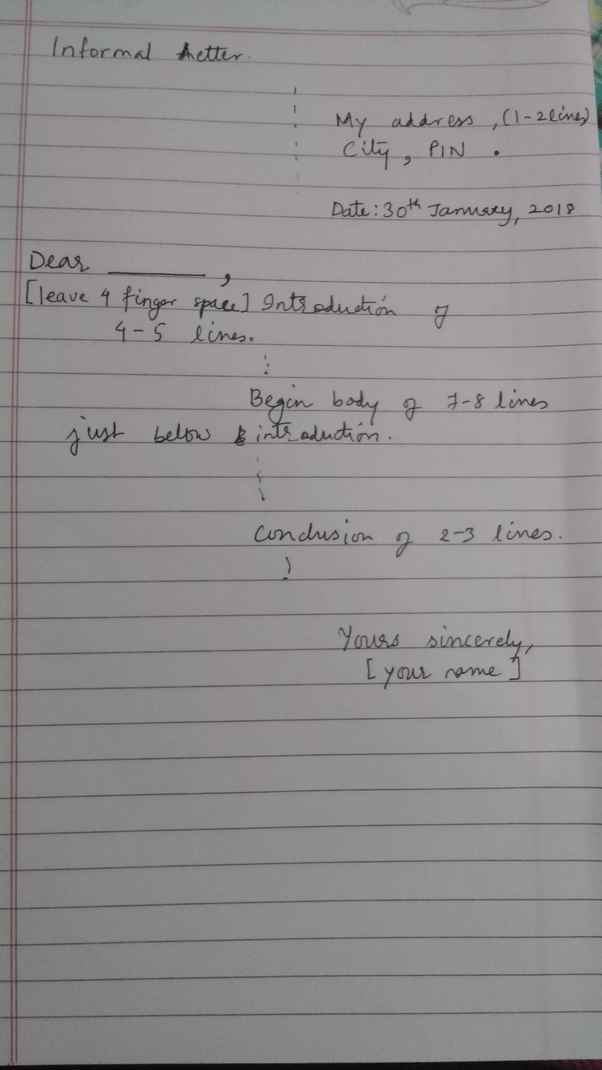 Informal Letter.
My address, (1-2 lines)
City, PIN.
Date: 30th January, 2018
Dear ________,
[leave 4 finger space] Introduction of
4-5 lines.
Begin body of 7-8 lines
just below introduction.
Conclusion of 2-3 lines.
Yours sincerely,
[your name]